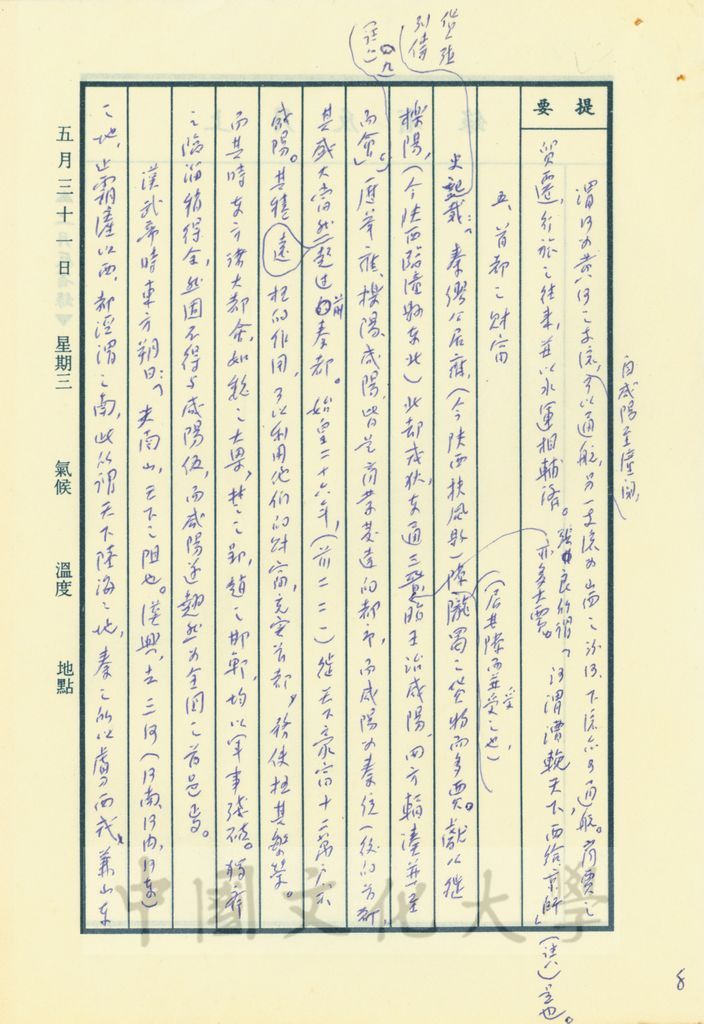 提要
渭河為黃河之支流，可以通航，另一支流為山西之汾河，下流亦可通航。商賈之
自咸陽至潼關，
貿遷，行旅之往來，並以水運相輔濟。張良所謂「河渭漕輓天下西給京師」（註八）是也。
五、首都之財富
史記載：「秦繆公居雍，（今陝西扶風縣）隙隴蜀之貨物而多賈。獻公徙
（居其隙而並受之也），
亦多大賈。
櫟陽，（今陝西臨潼縣東北）北卻戎狄，東通三晉。昭王治咸陽，四方輻湊並至
而會」。
貨殖列傳
（註九）
歷來雍、櫟陽、咸陽，皆是商業發達的都市，而咸陽為秦統一後的首都，
其盛大當然超過前秦都。始皇二十六年，（前二二一）徙天下豪富十二萬戶於
咸陽。其雄
遠
利用他們的財富，充實首都，務使極其繁榮。
而其時東方諸大都會，如魏之大梁，楚之郢，趙之邯鄲，均以軍事殘破。獨齊
之臨淄猶得全，然固不得與咸陽伍，而咸陽遂翹然為全國之首邑焉。
漢武帝時東方朔曰：「夫南山，天下之阻也。漢興，去三河（河南河內河東）
之地，止霸滻以西，都涇渭之南，此所謂天下陸海之地，秦之所以虜西戎，兼山東
五月三十一日 星期三 氣候 溫度 地點
中國文化大學
8